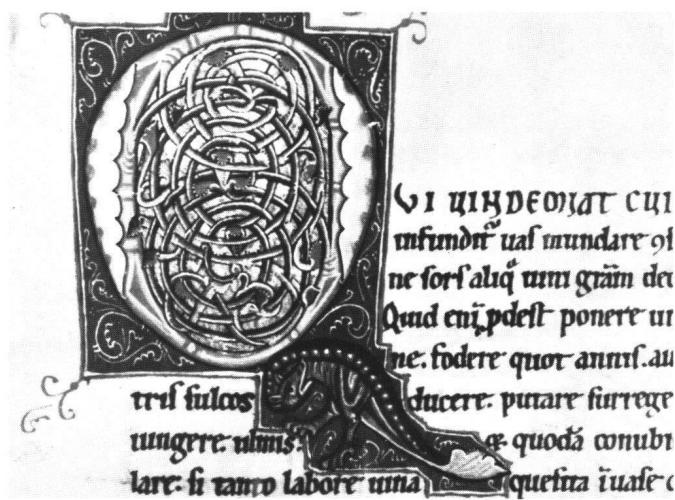 QVI UINDEMIAT CUI
infundit᷒ uas mundare ꝯs
ne sors aliqͣ uini grām dec
Quid enī ꝓdest ponere ui
ne. fodere quot annis. au
tris sulcos ducere: putare surrege
iungere: ulmis quodā conubi
lare: si tanto labore uina quesita ī uase c